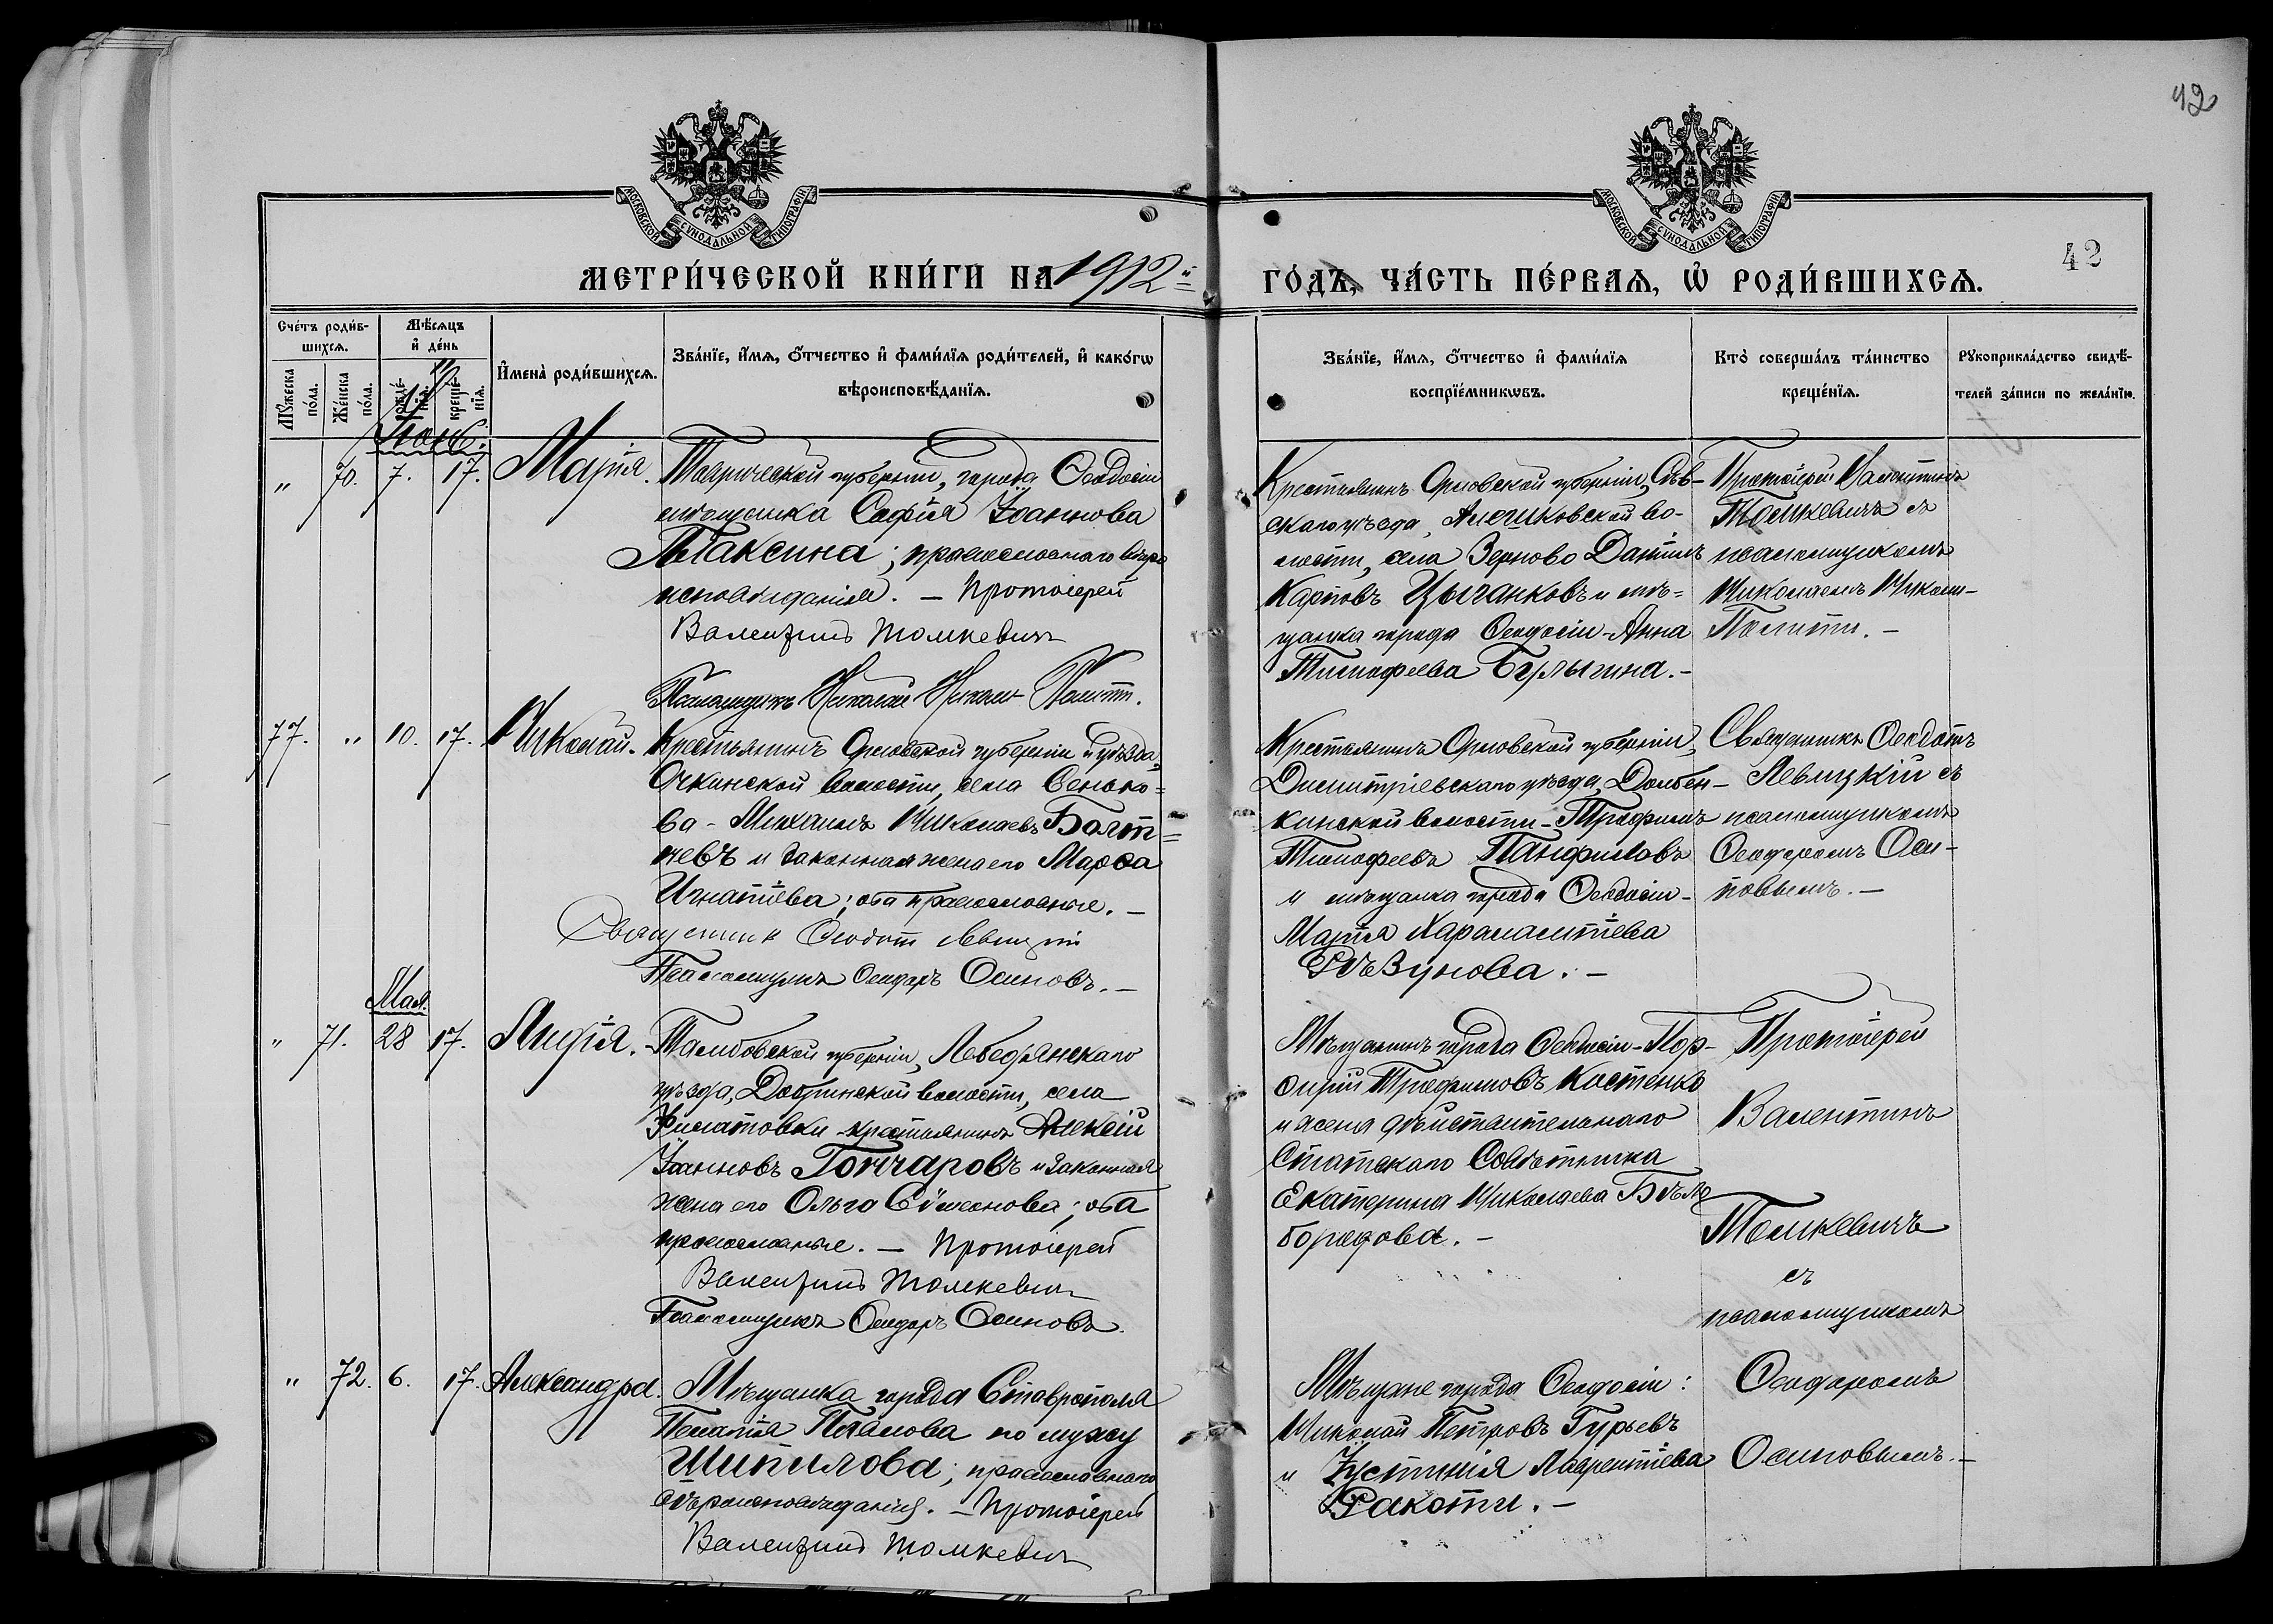 42
МОСКОВСКОЙ СѴНОДАЛЬНОЙ ТИПОГРАФІИ
МОСКОВСКОЙ СѴНОДАЛЬНОЙ ТИПОГРАФІИ
42
МЕТРИ́ЧЕСКОЙ КНИ́ГИ НА 1912й
ГО́ДЪ, ЧА́СТЬ ПЕ́РВАѦ, Ѡ҆ РОДИ́ВШИХСѦ.
Сче́тъ роди́в-
шихсѧ.
Мѣ́сѧцъ
и҆ де́нь
Мꙋ́жеска по́ла.
Же́нска по́ла.
рожде́-
нїѧ.
креще́-
нїѧ.
И҆мена̀ роди́вшихсѧ.
Зва́нїе, и҆́мѧ, ѻ҆́тчество и҆ фами́лїѧ роди́телей, и҆ како́гѡ
вѣроисповѣ́данїѧ.
Зва́нїе, и҆́мѧ, ѻ҆́тчество и҆ фами́лїѧ
воспрїе́мникѡвъ.
Кто̀ соверша́лъ та́инство
креще́нїѧ.
Рꙋкоприкла́дство свидѣ́-
телей за́писи по жела́нїю.
Іюнь.
" 70. 7. 17. Марія.
Таврической губерніи, города Ѳеодосіи
мѣщанка Софія Іоаннова
Таксина; православнаго вѣро
исповѣданія. – Протоіерей
Валентинъ Томкевичъ
Псаломщикъ Николай Никол. Политти.
Крестьянинъ Орловской губерніи, Сѣв-
скаго уѣзда, Алешковской во-
лости, села Зерново Даніилъ
Карповъ Цыганковъ и мѣ-
щанка города Ѳеодосіи - Анна
Тимофеева Булыгина. –
Протоіерей Валентинъ
Томкевичъ съ
псаломщикомъ
Николаемъ Никол.-
Политти. –
77. " 10. 17. Николай.
Крестьянинъ Орловской губерніи и уѣзда,
Очкинской волости, села Сенько-
ва - Михаилъ Николаевъ Болт-
невъ и законная жена его Марѳа
Игнатіева; оба православные. –
Священникъ Ѳеодотъ Левицкій
Псаломщикъ Ѳеодоръ Осиповъ. –
Крестьянинъ Орловской губерніи,
Димитріевскаго уѣзда, Долбен-
кинской волости - Трофимъ
Тимофеевъ Панфиловъ
и мѣщанка города Ѳеодосіи -
Марія Харалампіева
Рѣзунова. –
Священникъ Ѳеодотъ
Левицкій съ
псаломщикомъ
Ѳеодоромъ Оси-
повымъ. –
Мая.
" 71. 28 17. Лидія.
Тамбовской губерніи, Лебедянскаго
уѣзда, Добринской волости, села
Филатовки - крестьянинъ Алексій
Іоанновъ Гончаровъ и законная
жена его Ольга Симеонова; оба
православные. – Протоіерей
Валентинъ Томкевичъ
Псаломщикъ Ѳеодоръ Осиповъ.
Мѣщанинъ города Ѳеодосіи - Пор-
фирій Трофимовъ Костенко
и жена дѣйствительнаго
Статскаго Совѣтника
Екатерина Николаева Бѣло
бородова. –
Протоіерей
Валентинъ
Томкевичъ
съ
псаломщикомъ
" 72. 6. 17. Александра.
Мѣщанка города Ставрополя
Пелагія по мужу
Шипилова; православнаго
вѣроисповѣданія. – Протоіерей
Валентинъ Томкевичъ
Мѣщане города Ѳеодосіи:
Николай Петровъ Гурьевъ
и Іустинія Лаврентіева
Ракотти. –
Ѳеодоромъ
Осиповымъ. –